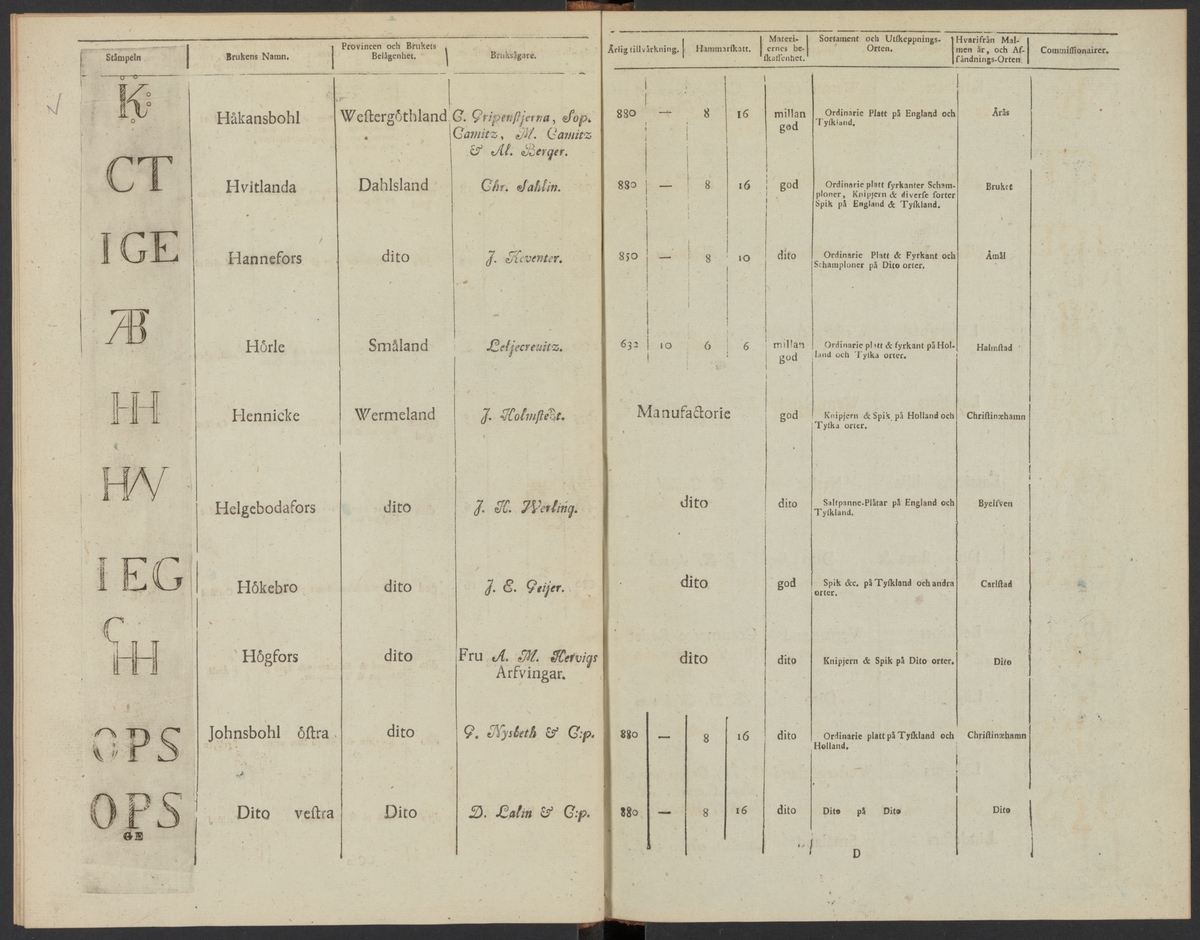 Stämpeln | Brukens Namn. | Provincen och Brukets Belägenhet. | Bruksägare. | Årlig tillvärkning. | Hammarskatt. | Materiernes beskaffenhet. | Sortament och Utskeppnings-Orten. | Hvarifrån Malmen är, och Afsändnings-Orten. | Commissionairer.
K | Håkansbohl | Westergöthland | C. Gripenstjerna, Sop. Camitz, M. Camitz & Al. Berger. | 880 | — | 8 | 16 | millan god | Ordinarie Platt på England och Tyskland. | Årås
CT | Hvitlanda | Dahlsland | Chr. Sahlin. | 880 | — | 8 | 16 | god | Ordinarie platt fyrkanter Schamploner, Knipjern & diverse sorter Spik på England & Tyskland. | Bruket
IGE | Hannefors | dito | J. Keventer. | 850 | — | 8 | 10 | dito | Ordinarie Platt & Fyrkant och Schamploner på Dito orter. | Åmål
AB | Hörle | Småland | Leljecreuitz. | 632 | 10 | 6 | 6 | millan god | Ordinarie platt & fyrkant på Holland och Tyska orter. | Halmstad
HH | Hennicke | Wermeland | J. Holmstedt. | Manufactorie | god | Knipjern & Spik på Holland och Tyska orter. | Christinæhamn
HW | Helgebodafors | dito | J. H. Werling. | dito | dito | Saltpanne-Plåtar på England och Tyskland. | Byelfven
IEG | Hökebro | dito | J. E. Geijer. | dito | god | Spik &c. på Tyskland och andra orter. | Carlstad
C HH | Högfors | dito | Fru A. M. Hervigs Arfvingar. | dito | dito | Knipjern & Spik på Dito orter. | Dito
OPS | Johnsbohl östra | dito | G. Nysbeth & C:p. | 880 | — | 8 | 16 | dito | Ordinarie platt på Tyskland och Holland. | Christinæhamn
OPS GE | Dito vestra | Dito | D. Lalin & C:p. | 880 | — | 8 | 16 | dito | Dito på Dito | Dito
D